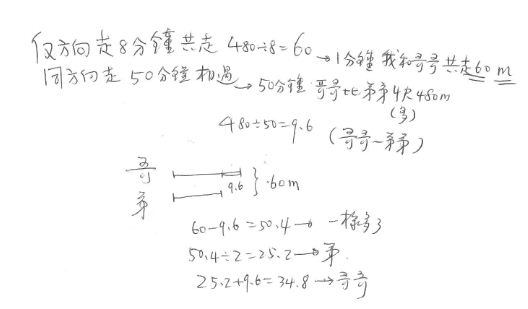 反方向走8分鐘共走 480÷8=60 →1分鐘 我和哥哥共走60m
同方向走 50分鐘相遇 →50分鐘 哥哥比弟弟快480m
(多)
480÷50=9.6 (哥哥-弟弟)
哥
9.6 }60m
弟
60-9.6=50.4→ 一樣多了
50.4÷2=25.2→弟
25.2+9.6=34.8→哥哥